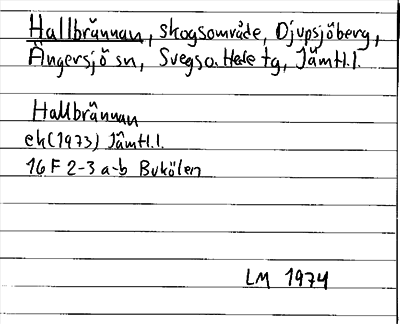 Hallbrännan, skogsområde, Djupsjöberg,
Ängersjö sn, Svegs o. Hede tg, Jämtl.l.
Hallbrännan
ek (1973) Jämtl.l.
16 F 2-3 a-b Bukölen
LM 1974